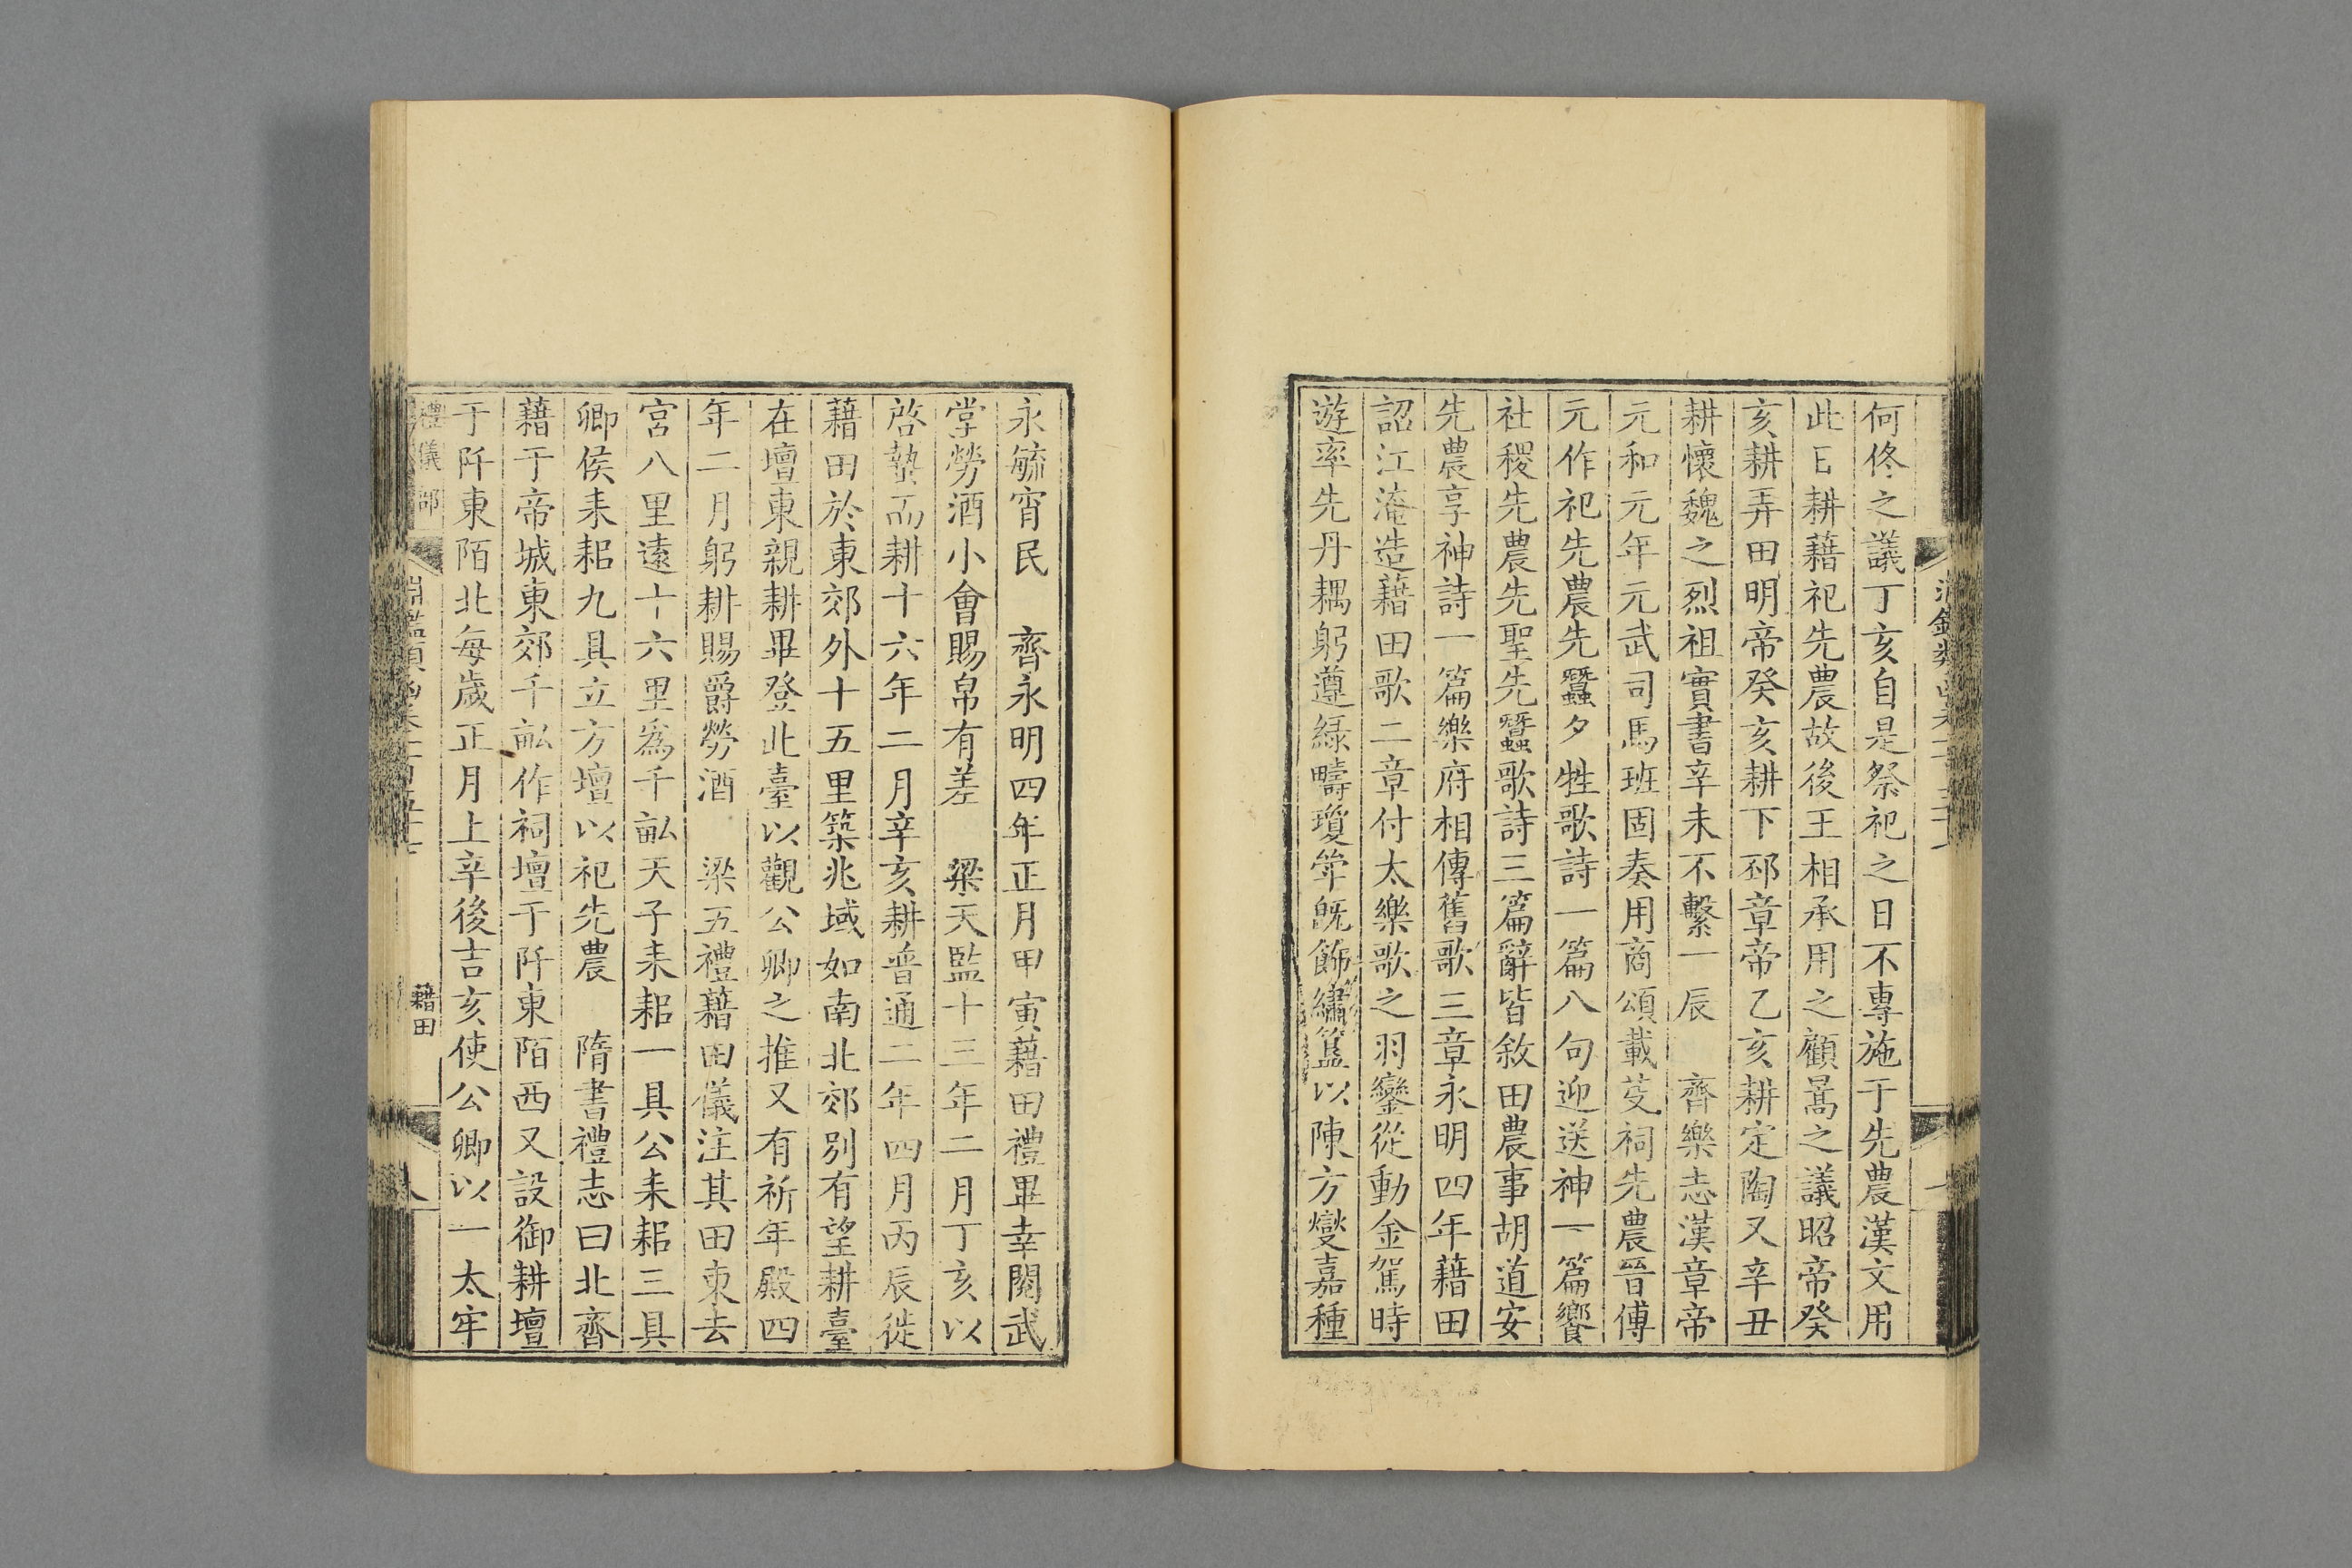 何佟之議丁亥自是祭祀之日不專施于先農漢文用
此日耕藉祀先農故後王相承用之顧暠之議昭帝癸
亥耕弄田明帝癸亥耕下邳章帝乙亥耕定陶又辛丑
耕懷魏之烈祖實書辛未不繫一辰　齊樂志漢章帝
元和元年元武司馬班固奏用商頌載芟祠先農晉傅
元作祀先農先蠶夕牲歌詩一篇八句迎送神一篇饗
社稷先農先聖先蠶歌詩三篇辭皆敘田農事胡道安
先農享神詩一篇樂府相傳舊歌三章永明四年藉田
詔江淹造藉田歌二章付太樂歌之羽鑾從動金駕時
遊率先丹耦躬遵綠疇瓊斝旣飾繡簋以陳方燮嘉種
永毓宵民　齊永明四年正月甲寅藉田禮畢幸閱武
堂勞酒小會賜帛有差　梁天監十三年二月丁亥以
啓蟄而耕十六年二月辛亥耕普通二年四月丙辰徙
藉田於東郊外十五里築兆域如南北郊別有望耕臺
在壇東親耕畢登此臺以觀公卿之推又有祈年殿四
年二月躬耕賜爵勞酒　梁五禮藉田儀注其田東去
宮八里遠十六里爲千畝天子耒耜一具公耒耜三具
卿侯耒耜九具立方壇以祀先農　隋書禮志曰北齊
藉于帝城東郊千畝作祠壇于阡東陌西又設御耕壇
于阡東陌北每歲正月上辛後吉亥使公卿以一太牢
禮儀部
藉田